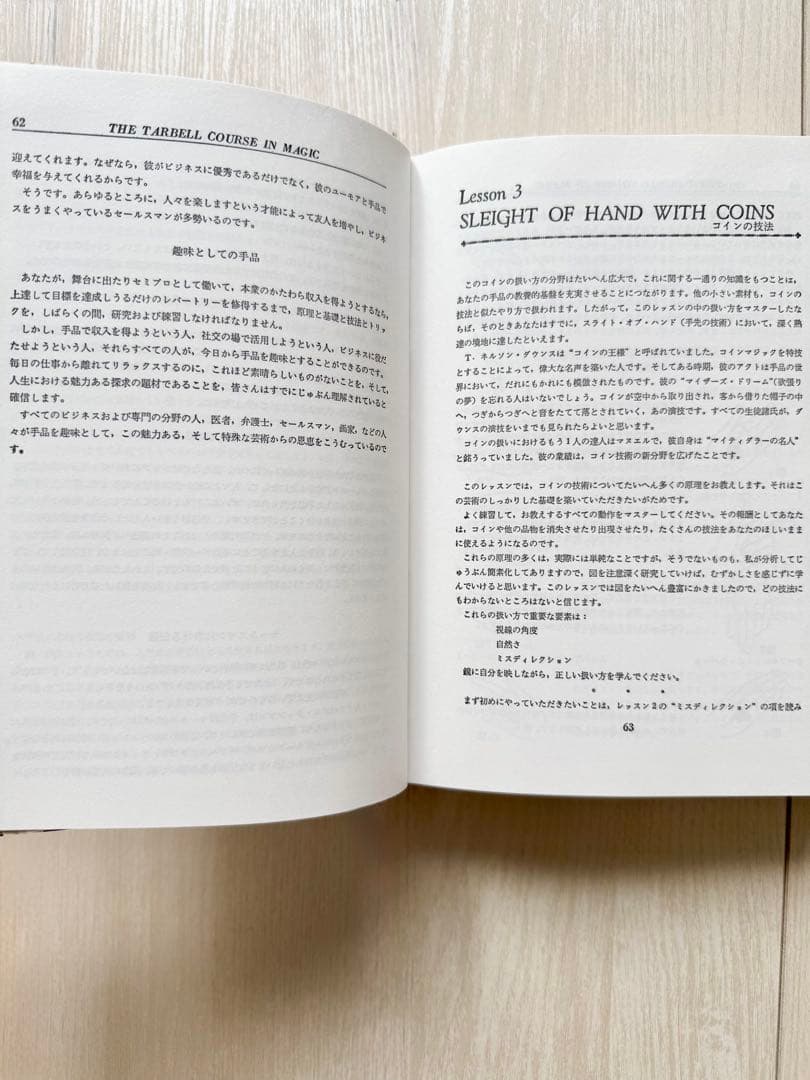 62
THE TARBELL COURSE IN MAGIC
迎えてくれます。なぜなら，彼がビジネスに優秀であるだけでなく，彼のユーモアと手品で
幸福を与えてくれるからです。
そうです。あらゆるところに，人々を楽しますという才能によって友人を増やし，ビジネ
スをうまくやっているセールスマンが多勢いるのです。
趣味としての手品
あなたが，舞台に出たりセミプロとして働いて，本業のかたわら収入を得ようとするなら，
上達して目標を達成しうるだけのレパートリーを修得するまで，原理と基礎と技法とトリッ
クを，しばらくの間，研究および練習しなければなりません。
しかし，手品で収入を得ようという人，社交の場で活用しようという人，ビジネスに役だ
たせようという人，それらすべての人が，今日から手品を趣味とすることができるのです。
毎日の仕事から離れてリラックスするのに，これほど素晴らしいものがないことを，そして，
人生における魅力ある探求の題材であることを，皆さんはすでにじゅぶん理解されていると
確信します。
すべてのビジネスおよび専門の分野の人，医者，弁護士，セールスマン，画家，などの人
々が手品を趣味として，この魅力ある，そして特殊な芸術からの恩恵をこうむっているので
す。
Lesson 3
SLEIGHT OF HAND WITH COINS
コインの技法
このコインの扱い方の分野はたいへん広大で，これに関する一通りの知識をもつことは，
あなたの手品の教養的基盤を充実させることにつながります。他の小さい素材も，コインの
技法と似たやり方で扱われます。したがって，このレッスンの中の扱い方をマスターしたな
らば，そのときあなたはすでに，スライト・オブ・ハンド（手先の技術）において，深く熟
達の境地に達したといえます。
T．ネルソン・ダウンスは“コインの王様”と呼ばれていました。コインマジックを特技
とすることによって，偉大な名声を築いた人です。そしてある時期，彼のアクトは手品の世
界において，だれにもかれにも模倣されたものです。彼の“マイザーズ・ドリーム”（欲張り
の夢）を忘れる人はいないでしょう。コインが空中から取り出され，客から借りた帽子の中
へ，つぎからつぎへと音をたてて落とされていく，あの演技です。すべての生徒諸氏が，ダ
ウンスの演技をいまでも見られたらよいと思います。
コインの扱いにおけるもう1人の達人はマヌエルで，彼自身は“マイティダラーの名人”
と銘うっていました。彼の業績は，コイン技術の新分野を広げたことです。
このレッスンでは，コインの技術についてたいへん多くの原理をお教えします。それはこ
の芸術のしっかりした基礎を築いていただきたいがためです。
よく練習して，お教えするすべての動作をマスターしてください。その報酬としてあなた
は，コインや他の品物を消失させたり出現させたり，たくさんの技法をあなたのほしいまま
に使えるようになるのです。
これらの原理の多くは，実際には単純なことですが，そうでないものも，私が分析してじ
ゅうぶん簡素化してありますので，図を注意深く研究していけば，むずかしさを感じずに学
んでいけると思います。このレッスンでは図をたいへん豊富にかきましたので，どの技法に
もわからないところはないと信じます。
これらの扱い方で重要な要素は：
視線の角度
自然さ
ミスディレクション
鏡に自分を映しながら，正しい扱い方を学んでください。
* * *
まず初めにやっていただきたいことは，レッスン2の“ミスディレクション”の項を読み
63